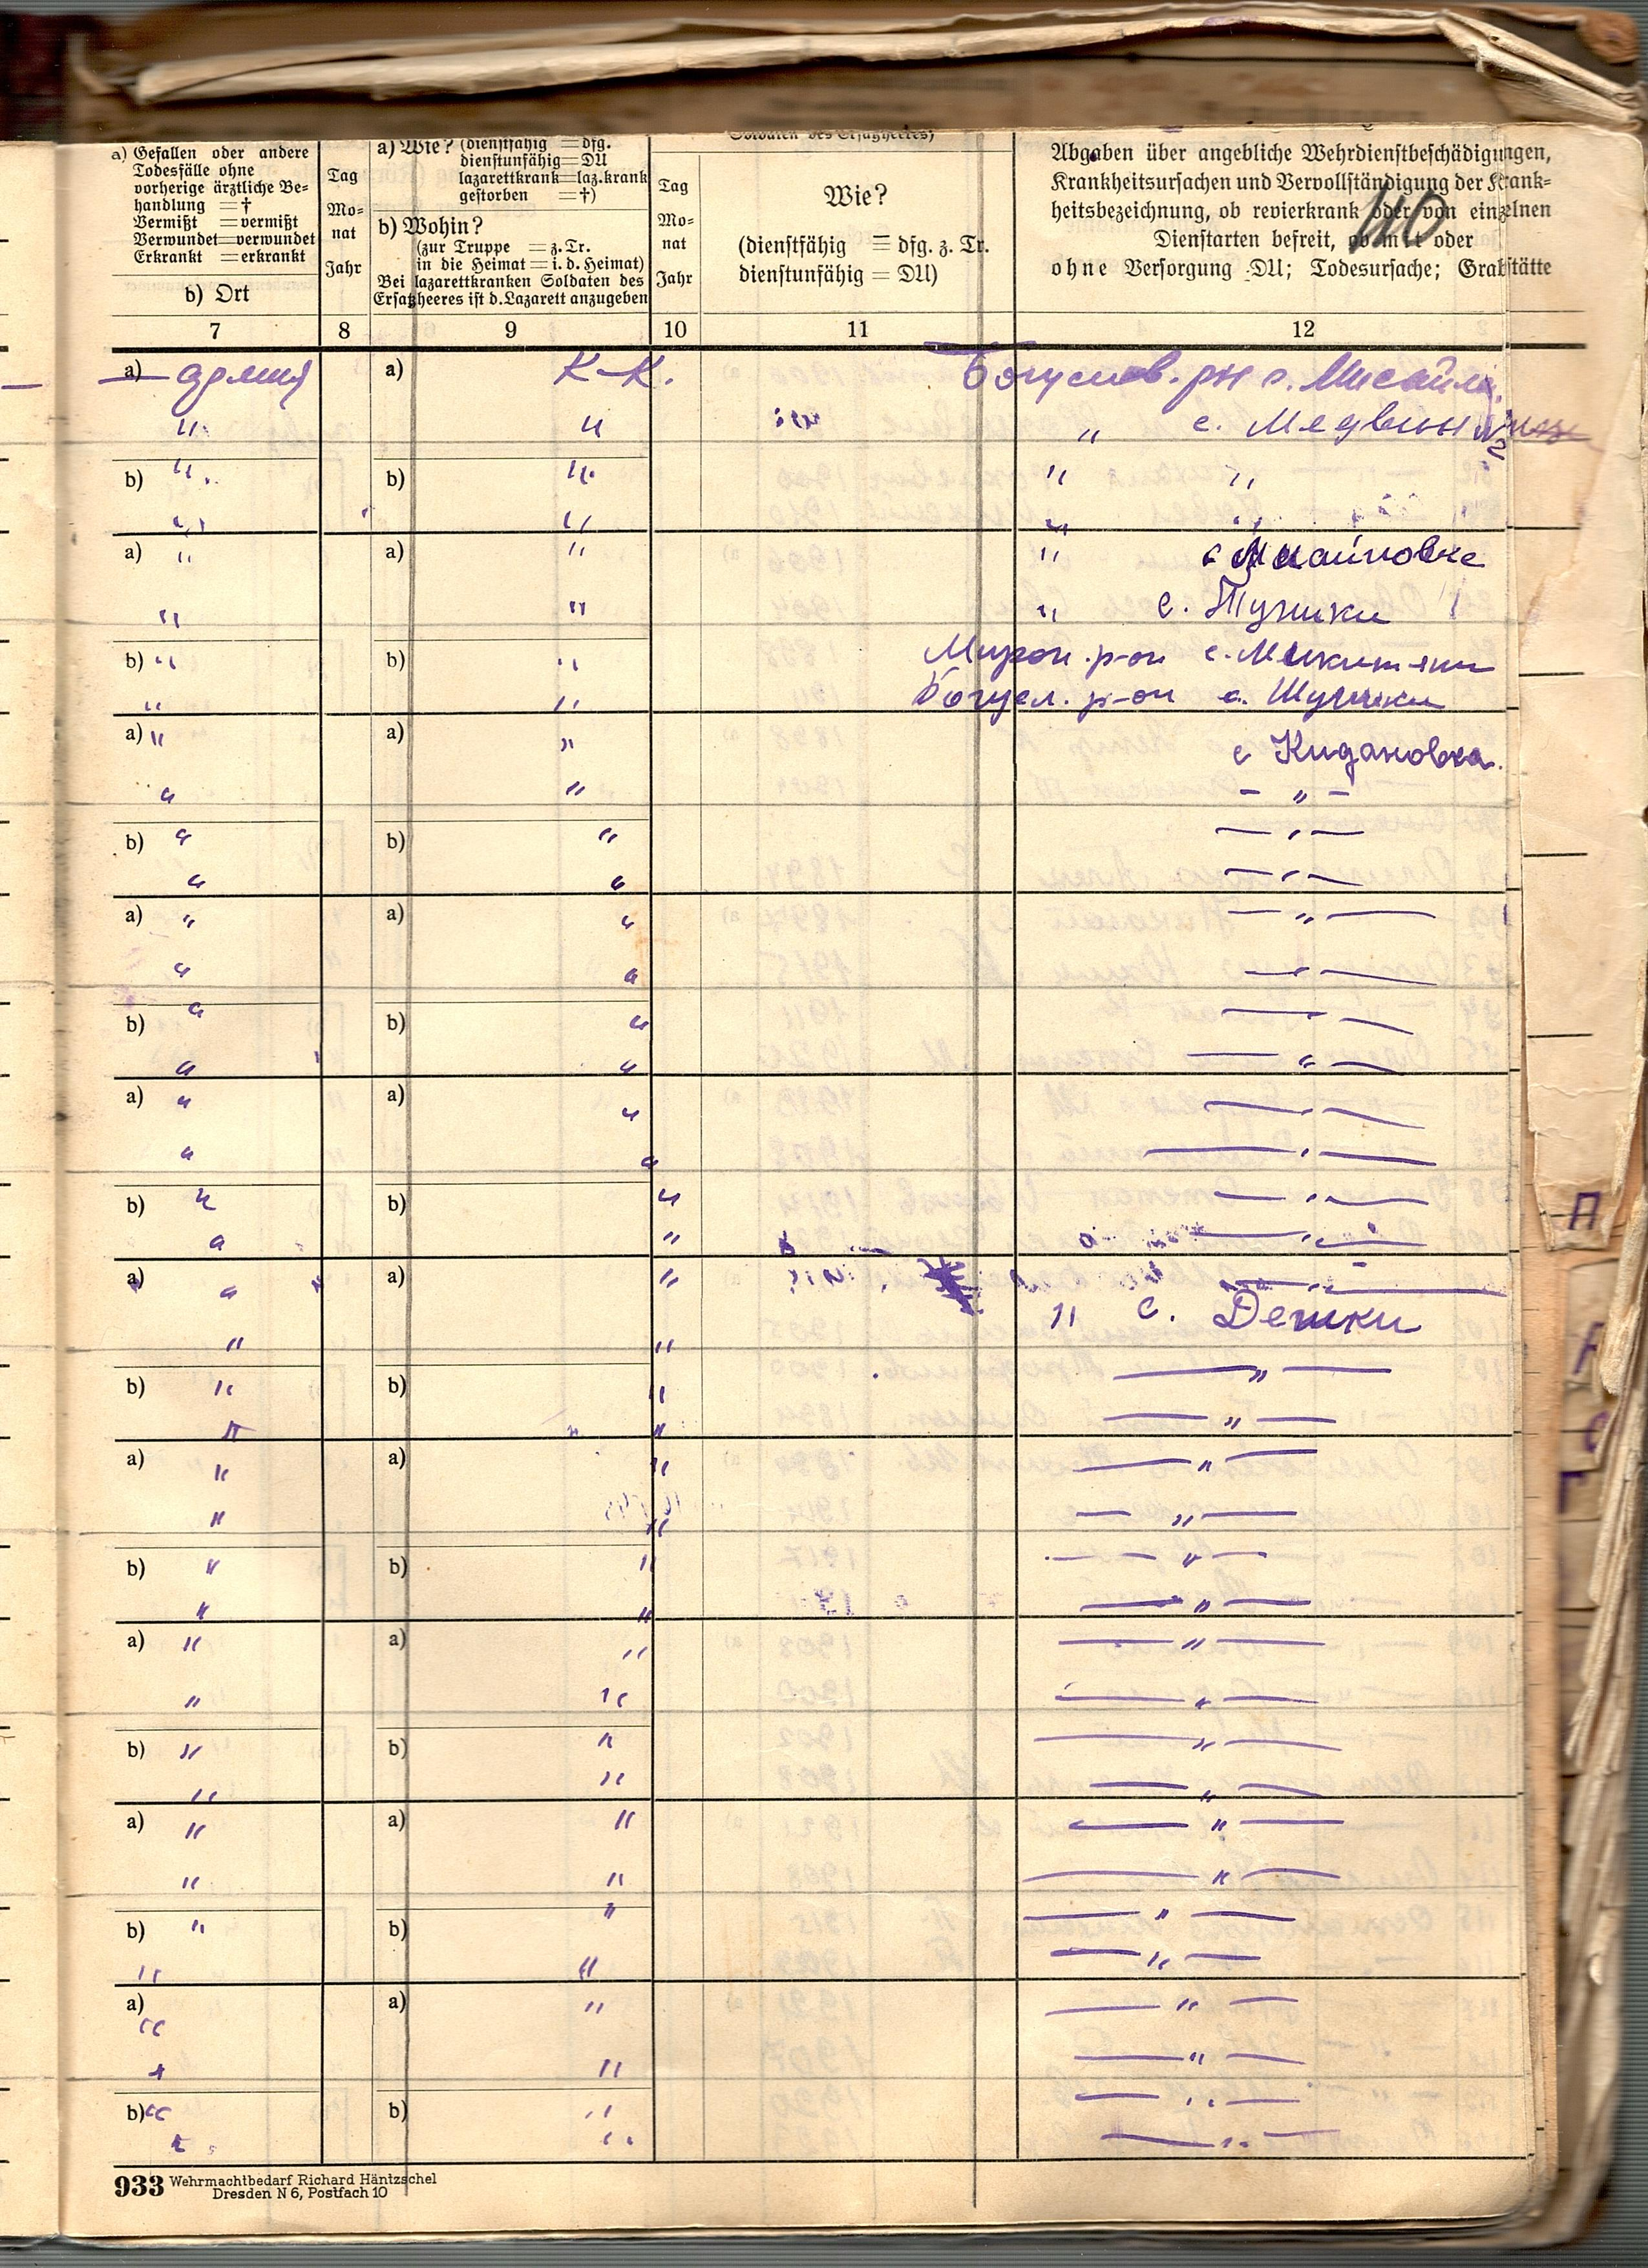 Soldaten des Ersatzheeres)
a) Gefallen oder andere
Todesfälle ohne
vorherige ärztliche Be-
handlung = †
Vermißt = vermißt
Verwundet = verwundet
Erkrankt = erkrankt
b) Ort
Tag
Mo-
nat
Jahr
a) Wie? (dienstfähig = dfg.
dienstunfähig = DU
lazarettkrank = laz.krank
gestorben = †)
b) Wohin?
(zur Truppe = z. Tr.
in die Heimat = i. d. Heimat)
Bei lazarettkranken Soldaten des
Ersatzheeres ist d. Lazarett anzugeben
Tag
Mo-
nat
Jahr
Wie?
(dienstfähig = dfg. z. Tr.
dienstunfähig = DU)
Abgaben über angebliche Wehrdienstbeschädigungen,
Krankheitsursachen und Vervollständigung der Krank-
heitsbezeichnung, ob revierkrank oder von einzelnen
Dienstarten befreit, ob mit oder
ohne Versorgung DU; Todesursache; Grabstätte
110
7 8 9 10 11 12
a) — армия a) К-К. Богуслав. рн с. Мисайл
" " " с. Медвин
b) " b) " " "
" " " "
a) " a) " " с Мисайловке
" " " с. Тушики
b) " b) " Мирон. р-он с. Микитяни
" " Богусл. р-он с. Шушки
a) " a) " с Кидановка.
" " - " -
b) " b) " — " —
" " — " —
a) " a) " — " —
" " — " —
b) " b) " — " —
" " — " —
a) " a) " — " —
" " — " —
b) " b) " — " —
" " — " —
a) " a) " — " —
" " " с. Дешки
b) " b) " — " —
" " — " —
a) " a) " — " —
" " — " —
b) " b) " — " —
" " — " —
a) " a) " — " —
" " — " —
b) " b) " — " —
" " — " —
a) " a) " — " —
" " — " —
b) " b) " — " —
" " — " —
a) " a) " — " —
" " — " —
b) " b) " — " —
" " — " —
933 Wehrmachtbedarf Richard Häntzschel
Dresden N 6, Postfach 10
П